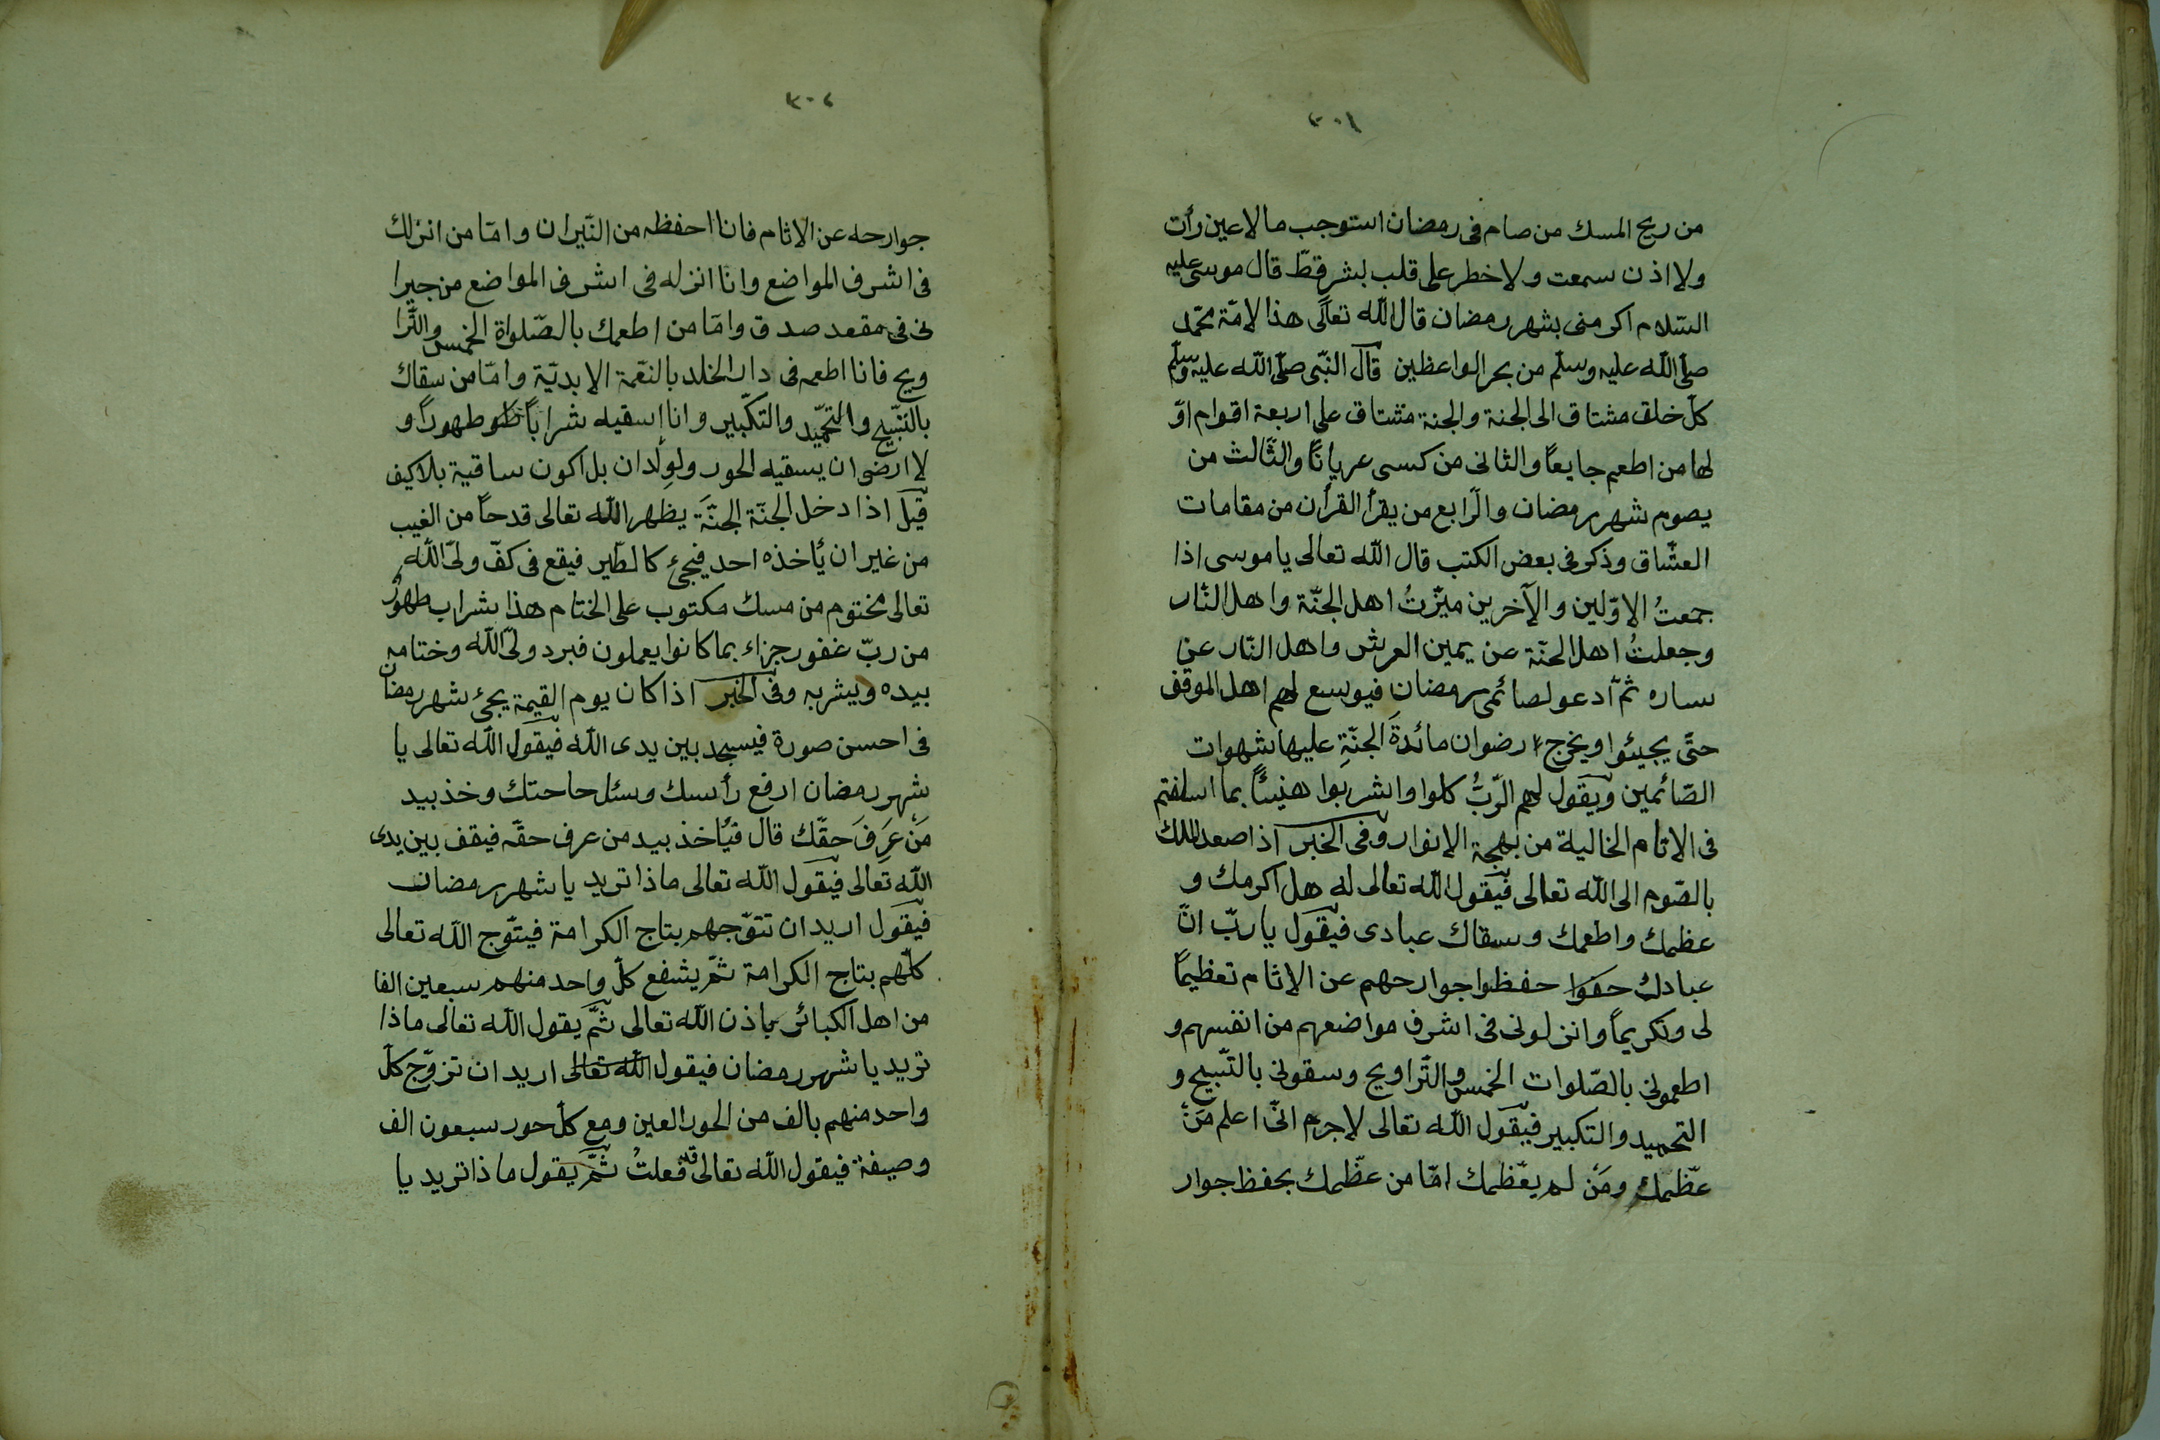 ٢٠١
من ريح المسك من صام فى رمضان استوجب مالاعين رأت
ولا اذن سمعت ولا خطر على قلب بشر قطّ قال موسى عليه
السّلام اكرمنى بشهر رمضان قال اللّه تعالى هذا لامّة محمّد
صلّى اللّه عليه وسلّم من بحر الواعظين قال النّبى صلّى اللّه عليه وسلّم
كلّ خلق مشتاق الى الجنة والجنة مشتاق على اربعة اقوام اوّ
لها من اطعم جايعاً والثانى من كسى عرياناً والثّالث من
يصوم شهر رمضان والرّابع من يقرأ القرأن من مقامات
العشّاق وذكر فى بعض الكتب قال اللّه تعالى يا موسى اذا
جمعتُ الاوّلين والآخرين ميّزتُ اهل الجنّة واهل النّار
وجعلتُ اهل الجنّة عن يمين العرش واهل النّار عن
يساره ثمّ ادعو لصائمى رمضان فيوسع لهم اهل الموقف
حتّى يجيئوا ويخرج رضوان مائدةَ الجنّةِ عليها شهوات
الصّائمين ويقول لهم الرّبُّ كلوا واشربوا هنيئاً بما اسلفتم
فى الايام الخالية من بهجة الانوار وفى الخبر اذا صعد الملك
بالصّوم الى اللّه تعالى فيقول اللّه تعالى له هل اكرمك و
عظمك واطعمك وسقاك عبادى فيقول يا ربّ انّ
عبادك حفوا حفظوا جوارحهم عن الاثام تعظيماً
لى وتكريماً وانزلونى فى اشرف مواضعهم من انفسهم و
اطعمونى بالصّلوات الخمس والتّراويح وسقونى بالتّسبيح و
التحميد والتكبير فيقول اللّه تعالى لاجرم انّى اعلم مَنْ
عظّمك ومَنْ لم يعظّمك امّا من عظّمك بحفظ جوار
٢٠٢
جوارحه عن الاثام فانا احفظه من النّيران وامّا من انزلك
فى اشرف المواضع وانا انزله فى اشرف المواضع من جيرا
نى فى مقعد صدق وامّا من اطعمك بالصّلواة الخمس والتّرا
ويح فانا اطعمه فى دار الخلد بالنّعمة الابديّة وامّا من سقاك
بالتّسبيح والتّحميد والتكّبير وانا اسقيه شراباً طهو طهوراً و
لا ارضى ان يسقيه الحور ولولدان بل اكون ساقية بلاكيف
قيل اذا دخل الجنّة الجنّةَ يظهر اللّه تعالى قدحاً من الغيب
من غير ان يأخذه احد فيجئ كالطّير فيقع فى كفّ ولىّ اللّه
تعالى مختوم من مسك مكتوب على الختام هذا شراب طهورٌ
من ربّ غفور جزاء بما كانوا يعملون فبرد ولىّ اللّه وختامه
بيده ويشربه وفى الخبر اذا كان يوم القيمة يجئ شهر رمضان
فى احسن صورة فيسجد بين يدى اللّه فيقول اللّه تعالى يا
شهر رمضان ارفع رأسك وسئل حاجتك وخذ بيد
مَنْ عَرِفَ حقّك قال فيأخذ بيد من عرف حقّه فيقف بين يدى
اللّه تعالى فيقول اللّه تعالى ماذا تريد يا شهر رمضان
فيقول اريد ان تتوّجهم بتاج الكرامة فيتّوج اللّه تعالى
كلّهم بتاج الكرامة ثمّ يشفع كلّ واحد منهم سبعين الفا
من اهل الكبائر باذن اللّه تعالى ثمّ يقول اللّه تعالى ماذا
تريد يا شهر رمضان فيقول اللّه تعالى اريد ان تزوّج كلّ
واحد منهم بالف من الحور العين ومع كلّ حور سبعون الف
وصيفة فيقول اللّه تعالى قد فعلتُ ثمّ يقول ماذا تريد يا